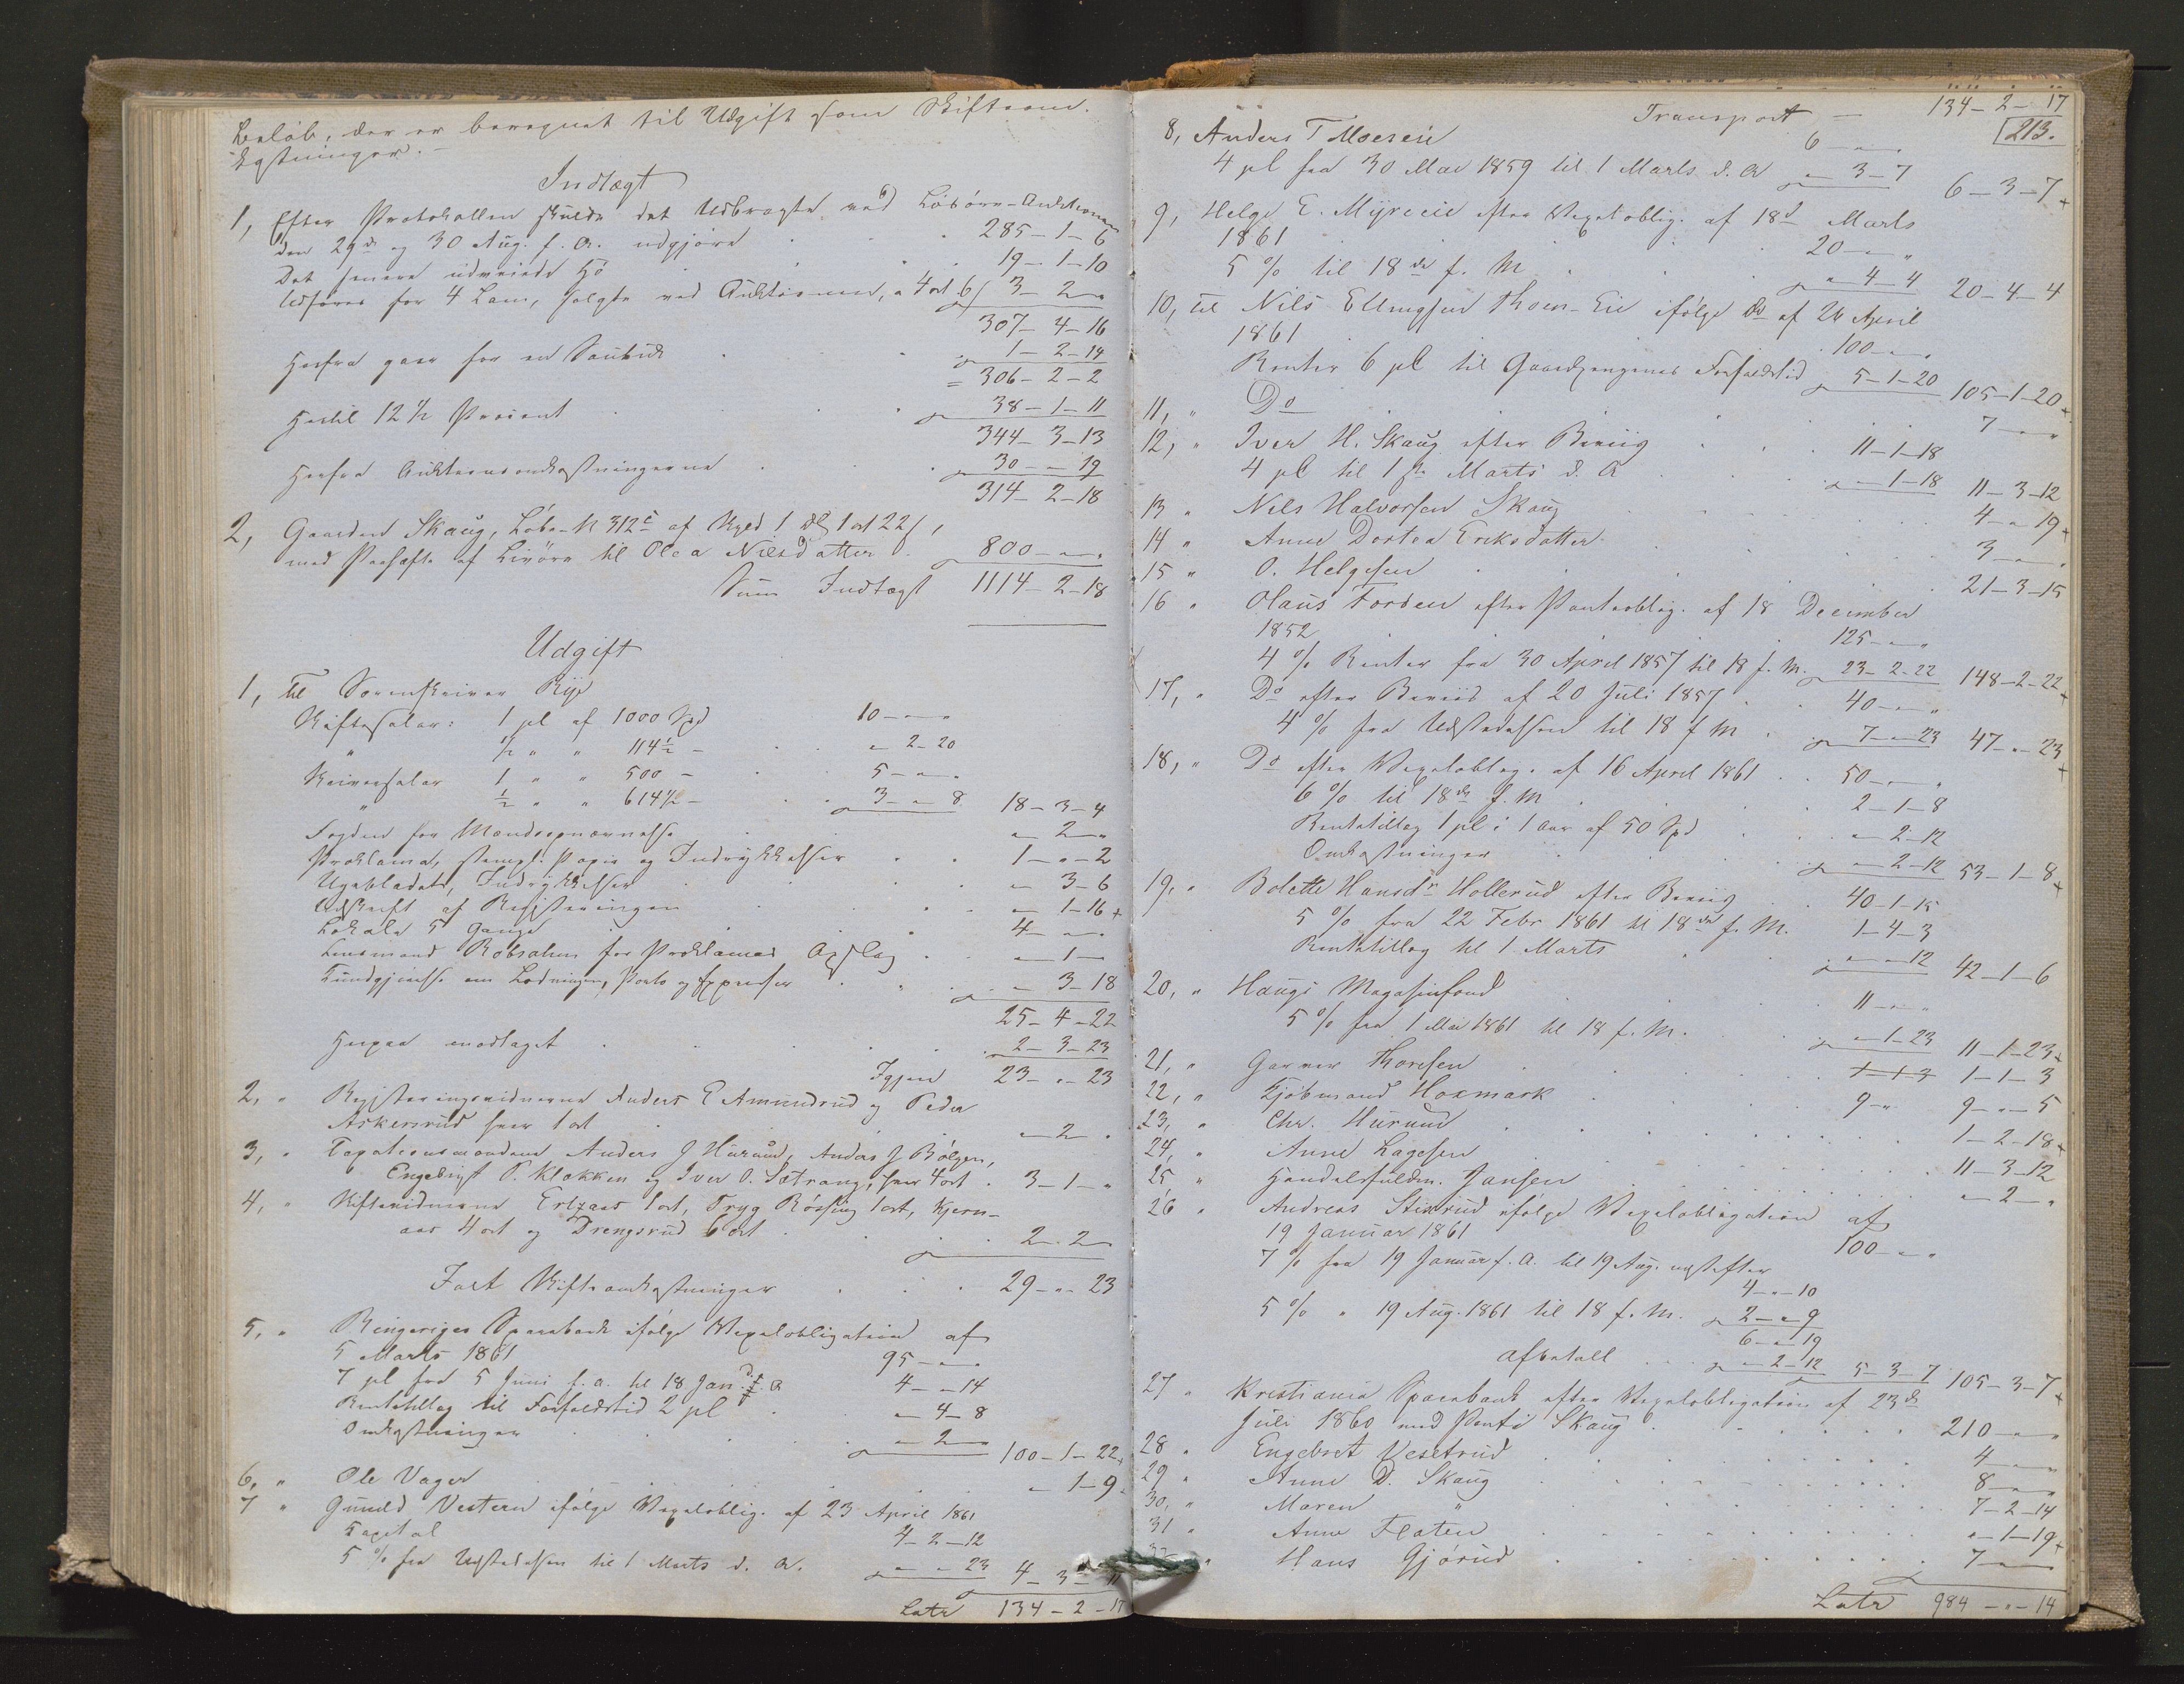 Beløb, der er beregnet til Udgift som Skifteom-
kostninger. -
Indtægt
1, Efter Protokollen skulde det Udbragte ved Løsøre-Auktionen
den 29de og 30 Aug. f. A. udgjøre 285-1-6
Det senere udveiede Hø 19-1-10
Udføres for 4 Lam, solgte ved Auktionen, a 4 ort 6 s 3-2-"
307-4-16
Herfra gaar for en Saubuk 1-2-14
= 306-2-2
Hertil 12 1/2 Procent 38-1-11
344-3-13
Herfra Auktionsomkostningerne 30-"-19
314-2-18
2, Gaarden Skaug, Løbe-N 312c af Skyld 1 Dl 1 ort 22 s,
med Paahefte af Livøre til Olea Nilsdatter 800-"-"
Sum Indtægt 1114-2-18
Udgift
1, Til Sorenskriver Rye
Skiftesalær: 1 pC af 1000 Spd 10-"-"
" 1/2 " " 114 1/2 - "-2-20
Skriversalær 1 " " 500 - 5-"-"
" 1/2 " " 614 1/2 - 3-"-8 18-3-4
Fogden for Mandsopnævnelse "-2-"
Proklama, stempl. Papir og Indrykkelser 1-"-2
Ugebladets, Indrykkelser "-3-6
Udskrift af Registreringen "-1-16+
Lokale 5 Gange 4-"-"
Lensmand Robsahm for Proklamas Opslag "-1-"
Kundgjørelse om Lodningen, Porto og Expenser "-3-18
25-4-22
Herpaa modtaget 2-3-23
Igjen 23-"-23
2, " Registreringsvidnerne Anders E Amundrud og Peder
Askersrud hver 1 ort "-2-"
3, " Taxationsmændene Anders J Hurum, Anders J Bølgen,
Engebrigt P. Klækken og Iver O. Sætrang, hver 4 ort 3-1-"
4, " Skiftevidnerne 1 ort, Tryg Røssing 1 ort, Kjern-
aas 4 ort og Drengsrud 6 ort 2-2-
Fort Skifteomkostninger 29-"-23
5, " Ringeriges Sparebank ifølge Vexelobligation af
5 Marts 1861 95-"-"
7 pC fra 5 Juni f. a. til 18 Jan. d. A 4-"-14
Rentetillæg til Forfaldstid 2 pC "-4-8
Omkostninger "-2- 100-1-22+
6, " Ole Vager "-1-9
7 " Gunild Vestern ifølge Vexeloblig. af 23 April 1861
Capital 4-2-12
5 % fra Udstedelsen til 1 Marts d. A. "-"-23 4-3-11
Latr 134-2-17
Transport - 134-2-17
213.
8, Anders T Moeseie 6-"-"
4 pC fra 30 Mai 1859 til 1 Marts d. A "-3-7 6-3-7+
9, Helge E. Myreeie efter Vexeloblig. af 18d Marts
1861 20-"-"
5 % til 18de f. M "-4-4 20-4-4
10, til Nils Ellingsen Moen-Eie ifølge do af 24 April
1861 100-"-"
Renter 6 pC til Gaardpengenes Forfaldstid 5-1-20 105-1-20+
11, " Do 7-"-"
12, " Iver H. Skaug efter Beviis 11-1-18
4 pC til 1ste Marts d. A "-1-18 11-3-12
13 " Nils Halvorsen Skaug 4-"-19+
14 " Anne Dortea Eriksdatter 3-"-"
15 " O. Helgesen 21-3-15
16 " Olaus Forden efter Panteoblig. af 18 December
1852 125-"-"
4 % Renter fra 30 April 1857 til 18 f. M. 23-2-22 148-2-22+
17, " Do efter Beviis af 20 Juli 1857 40-"-"
4 % fra Udstedelsen til 18 f M 7-"-23 47-"-23+
18, " Do efter Vexeloblig. af 16 April 1861 50-"-"
6 % til 18de f. M 2-1-8
Rentetillæg 1 pC i 1 Aar af 50 Spd "-2-12
Omkostninger "-2-12 53-1-8+
19, " Bolette Hansdr Hollerud efter Beviis 40-1-15
5 % fra 22 Febr 1861 til 18de f. M. 1-4-3
Rentetillæg til 1 Marts "-"-12 42-1-6
20, " Haugs Magasinfond 11-"-"
5 % fra 1 Mai 1861 til 18 f. M. "-1-23 11-1-23+
21, " Garver Thoresen 1-1-3 1-1-3
22, " Kjøbmand Hoxmark 9-" 9-"-5
23, " Chr. Hurum 1-2-18+
24, " Anne Lagesen 11-3-12
25 " Handelsfuldm. Jansen "-2-"
26 " Andreas Stixrud ifølge Vexelobligation af
19 Januar 1861 100-"-"
7 % fra 19 Januar f. A. til 19 Aug. næstefter
4-"-10
5 % " 19 Aug. 1861 til 18 f. M. 2-"-9
6-"-19
Afbetalt "-2-12 5-3-7 105-3-7+
27 " Kristiania Sparebank efter Vexelobligation af 23de
Juli 1860 med Pant i Skaug 210-"-"
28 " Engebret Vesetrud 4-"-"
29 " Anne D. Skaug 8-"-"
30, " Maren " 7-2-14
31 " Anne Flaten "-1-19+
32 " Hans Gjørud 7-"-"
Latr 984-"-14